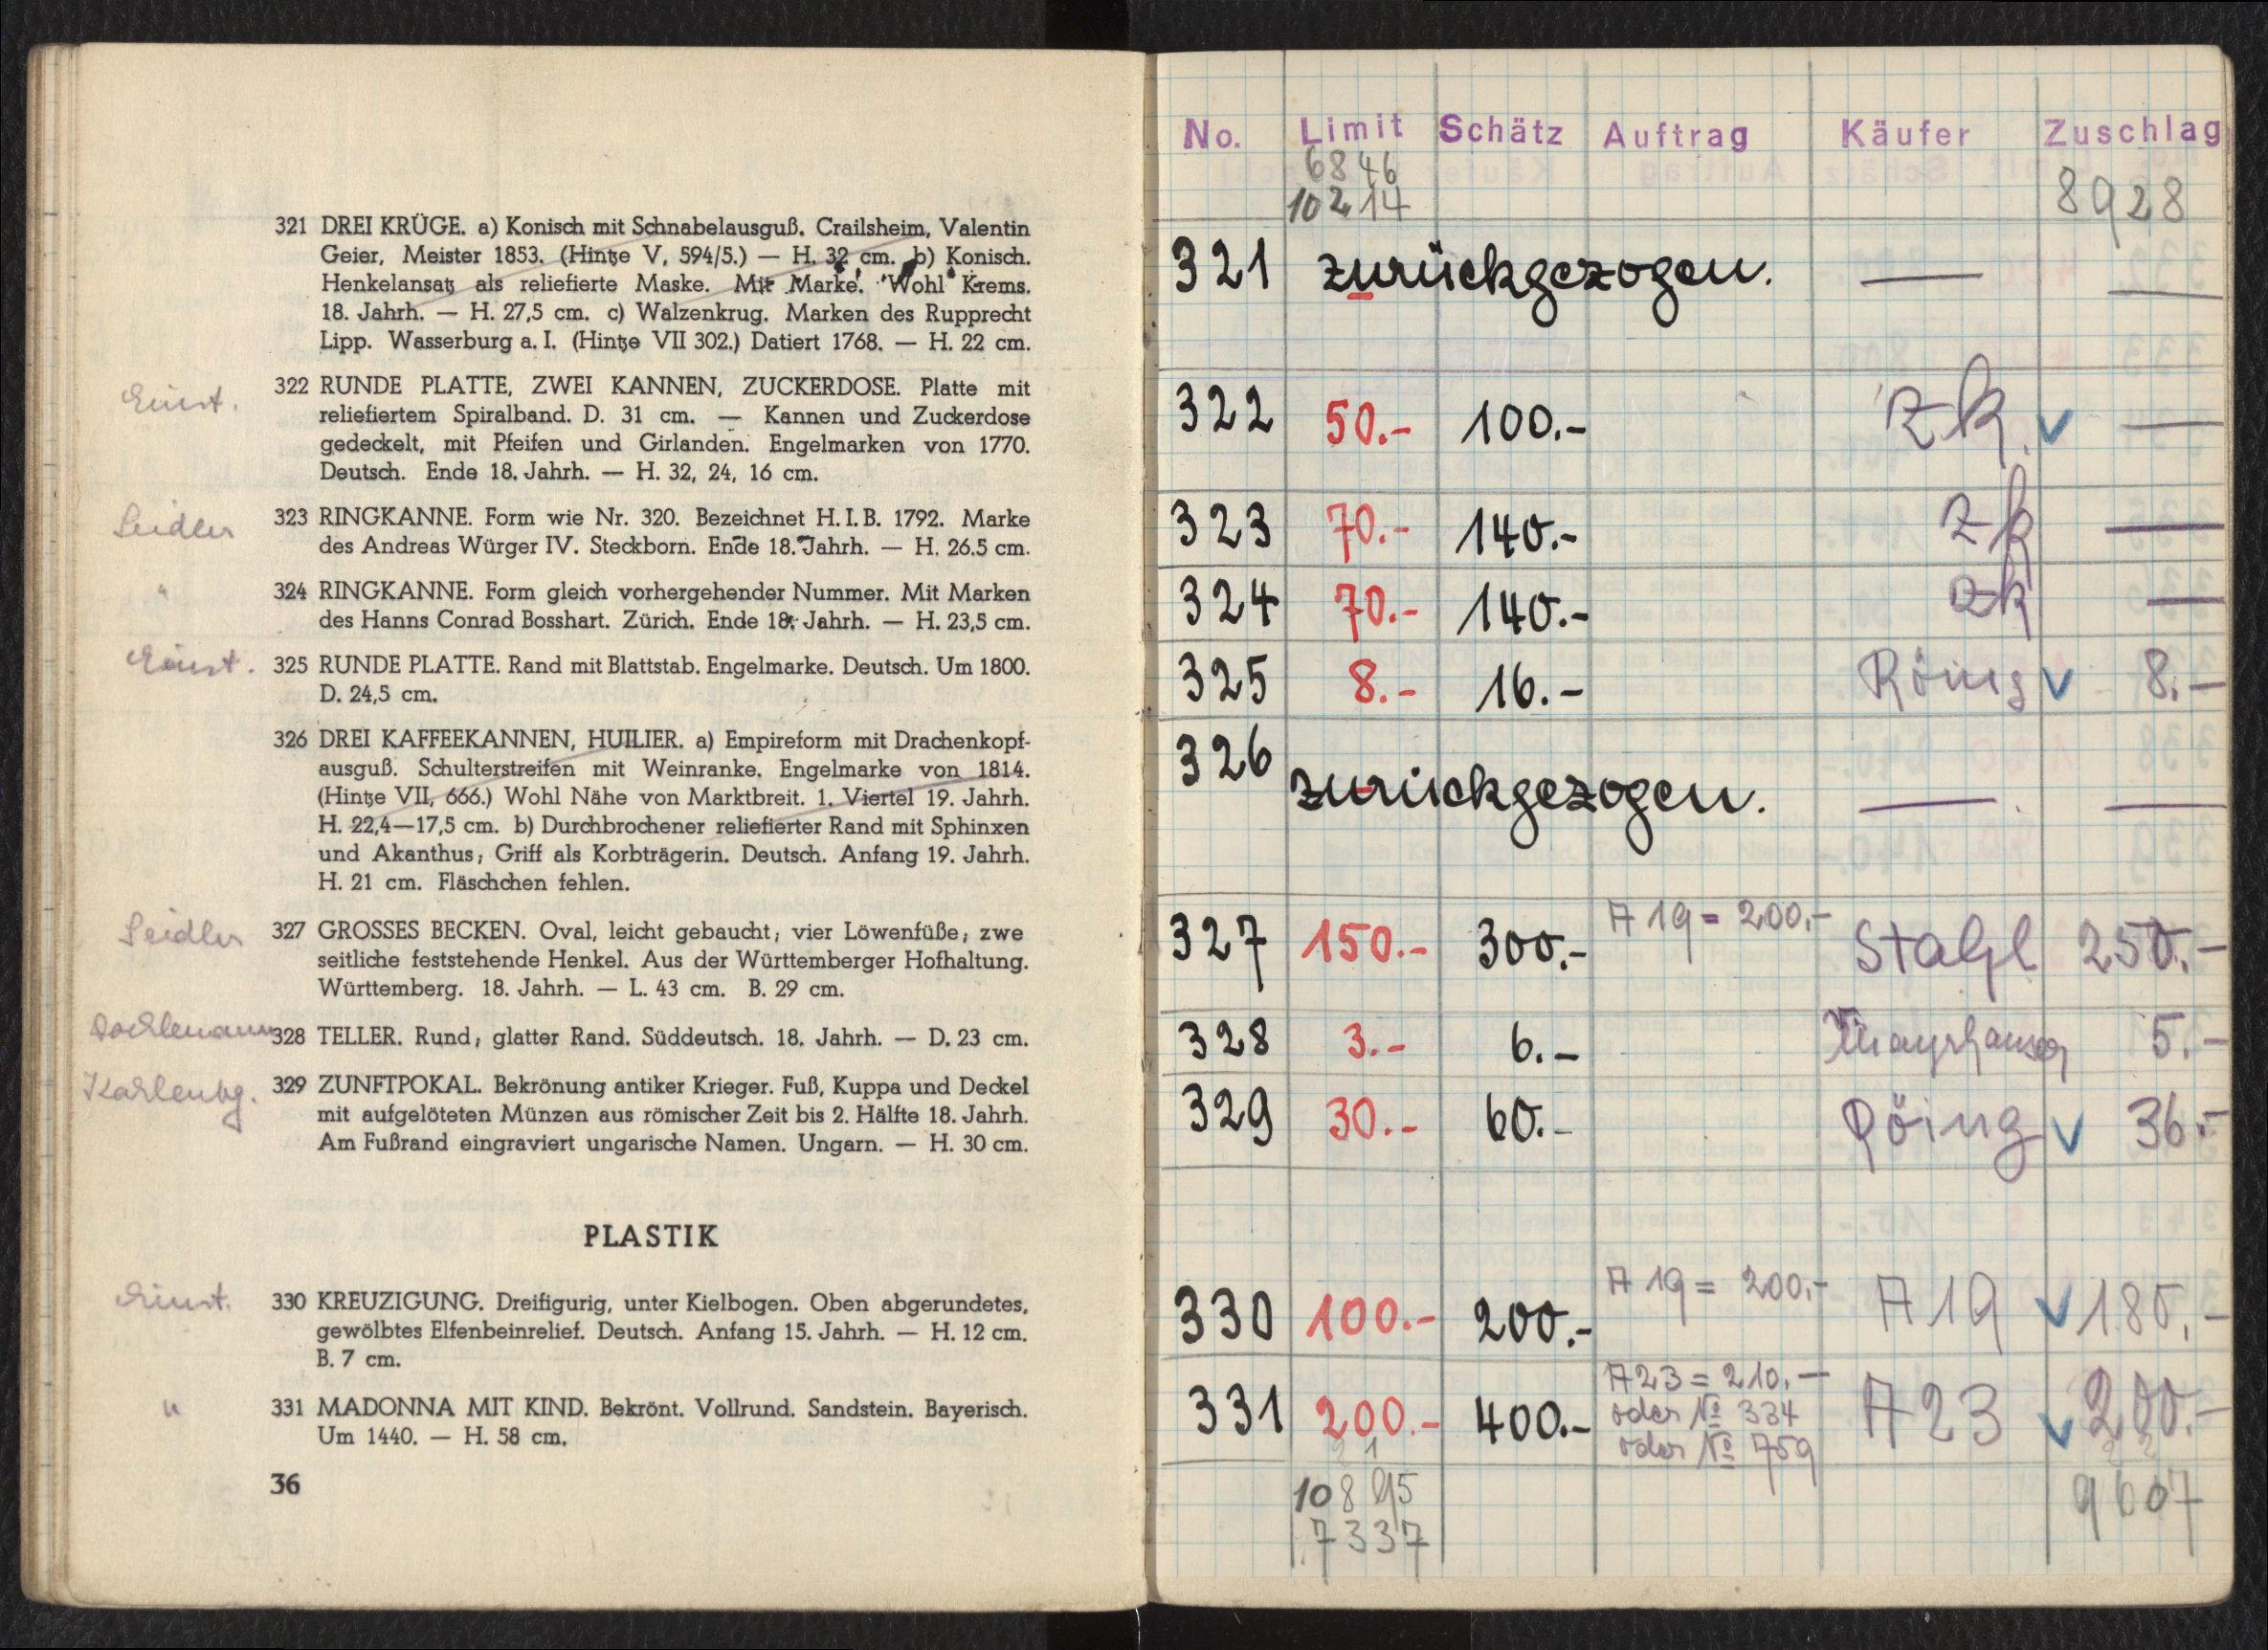 321 DREI KRÜGE. a) Konisch mit Schnabelausguß. Crailsheim, Valentin
Geier, Meister 1853. (Hintze V, 594/5.) — H. 32 cm. b) Konisch.
Henkelansatz als reliefierte Maske. Mit Marke. Wohl Krems.
18. Jahrh. — H. 27,5 cm. c) Walzenkrug. Marken des Rupprecht
Lipp. Wasserburg a. I. (Hintze VII 302.) Datiert 1768. — H. 22 cm.
322 RUNDE PLATTE, ZWEI KANNEN, ZUCKERDOSE. Platte mit
reliefiertem Spiralband. D. 31 cm. — Kannen und Zuckerdose
gedeckelt, mit Pfeifen und Girlanden. Engelmarken von 1770.
Deutsch. Ende 18. Jahrh. — H. 32, 24, 16 cm.
Seidler
323 RINGKANNE. Form wie Nr. 320. Bezeichnet H. I. B. 1792. Marke
des Andreas Würger IV. Steckborn. Ende 18. Jahrh. — H. 26.5 cm.
"
324 RINGKANNE. Form gleich vorhergehender Nummer. Mit Marken
des Hanns Conrad Bosshart. Zürich. Ende 18. Jahrh. — H. 23,5 cm.
325 RUNDE PLATTE. Rand mit Blattstab. Engelmarke. Deutsch. Um 1800.
D. 24,5 cm.
326 DREI KAFFEEKANNEN, HUILIER. a) Empireform mit Drachenkopf-
ausguß. Schulterstreifen mit Weinranke. Engelmarke von 1814.
(Hintze VII, 666.) Wohl Nähe von Marktbreit. 1. Viertel 19. Jahrh.
H. 22,4—17,5 cm. b) Durchbrochener reliefierter Rand mit Sphinxen
und Akanthus; Griff als Korbträgerin. Deutsch. Anfang 19. Jahrh.
H. 21 cm. Fläschchen fehlen.
Seidler
327 GROSSES BECKEN. Oval, leicht gebaucht; vier Löwenfüße; zwe
seitliche feststehende Henkel. Aus der Württemberger Hofhaltung.
Württemberg. 18. Jahrh. — L. 43 cm. B. 29 cm.
328 TELLER. Rund; glatter Rand. Süddeutsch. 18. Jahrh. — D. 23 cm.
329 ZUNFTPOKAL. Bekrönung antiker Krieger. Fuß, Kuppa und Deckel
mit aufgelöteten Münzen aus römischer Zeit bis 2. Hälfte 18. Jahrh.
Am Fußrand eingraviert ungarische Namen. Ungarn. — H. 30 cm.
PLASTIK
330 KREUZIGUNG. Dreifigurig, unter Kielbogen. Oben abgerundetes,
gewölbtes Elfenbeinrelief. Deutsch. Anfang 15. Jahrh. — H. 12 cm.
B. 7 cm.
"
331 MADONNA MIT KIND. Bekrönt. Vollrund. Sandstein. Bayerisch.
Um 1440. — H. 58 cm.
36
No. Limit Schätz Auftrag Käufer Zuschlag
6846
10214 8928
321 zurückgezogen. — —
322 50.- 100.- zk. —
323 70.- 140.- zk —
324 70.- 140.- zk —
325 8.- 16.- 8.-
326 zurückgezogen. — —
327 150.- 300.- A 19 = 200.- Stahl 250.-
328 3.- 6.- 5.-
329 30.- 60.- 36.-
330 100.- 200.- A 19 = 200.- A 19 180.-
331 200.- 400.- A 23 = 210.- A 23 200.-
oder № 334
oder № 759
10895 9607
7337